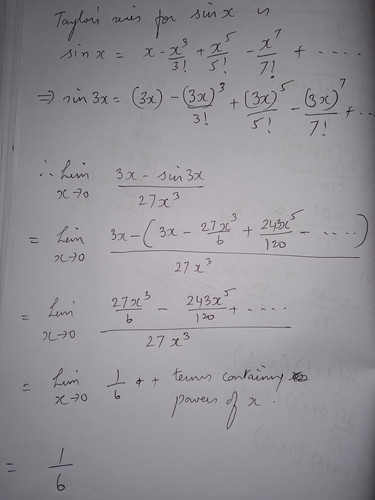 Taylor's series for sin x is
sin x = x - x³/3! + x⁵/5! - x⁷/7! + ....
⇒ sin 3x = (3x) - (3x)³/3! + (3x)⁵/5! - (3x)⁷/7! + ..
∴ Lim x→0 (3x - sin 3x)/(27x³)
= Lim x→0 (3x - (3x - 27x³/6 + 243x⁵/120 - ....))/(27x³)
= Lim x→0 (27x³/6 - 243x⁵/120 + ....)/(27x³)
= Lim x→0 1/6 + + terms containing
powers of x.
= 1/6